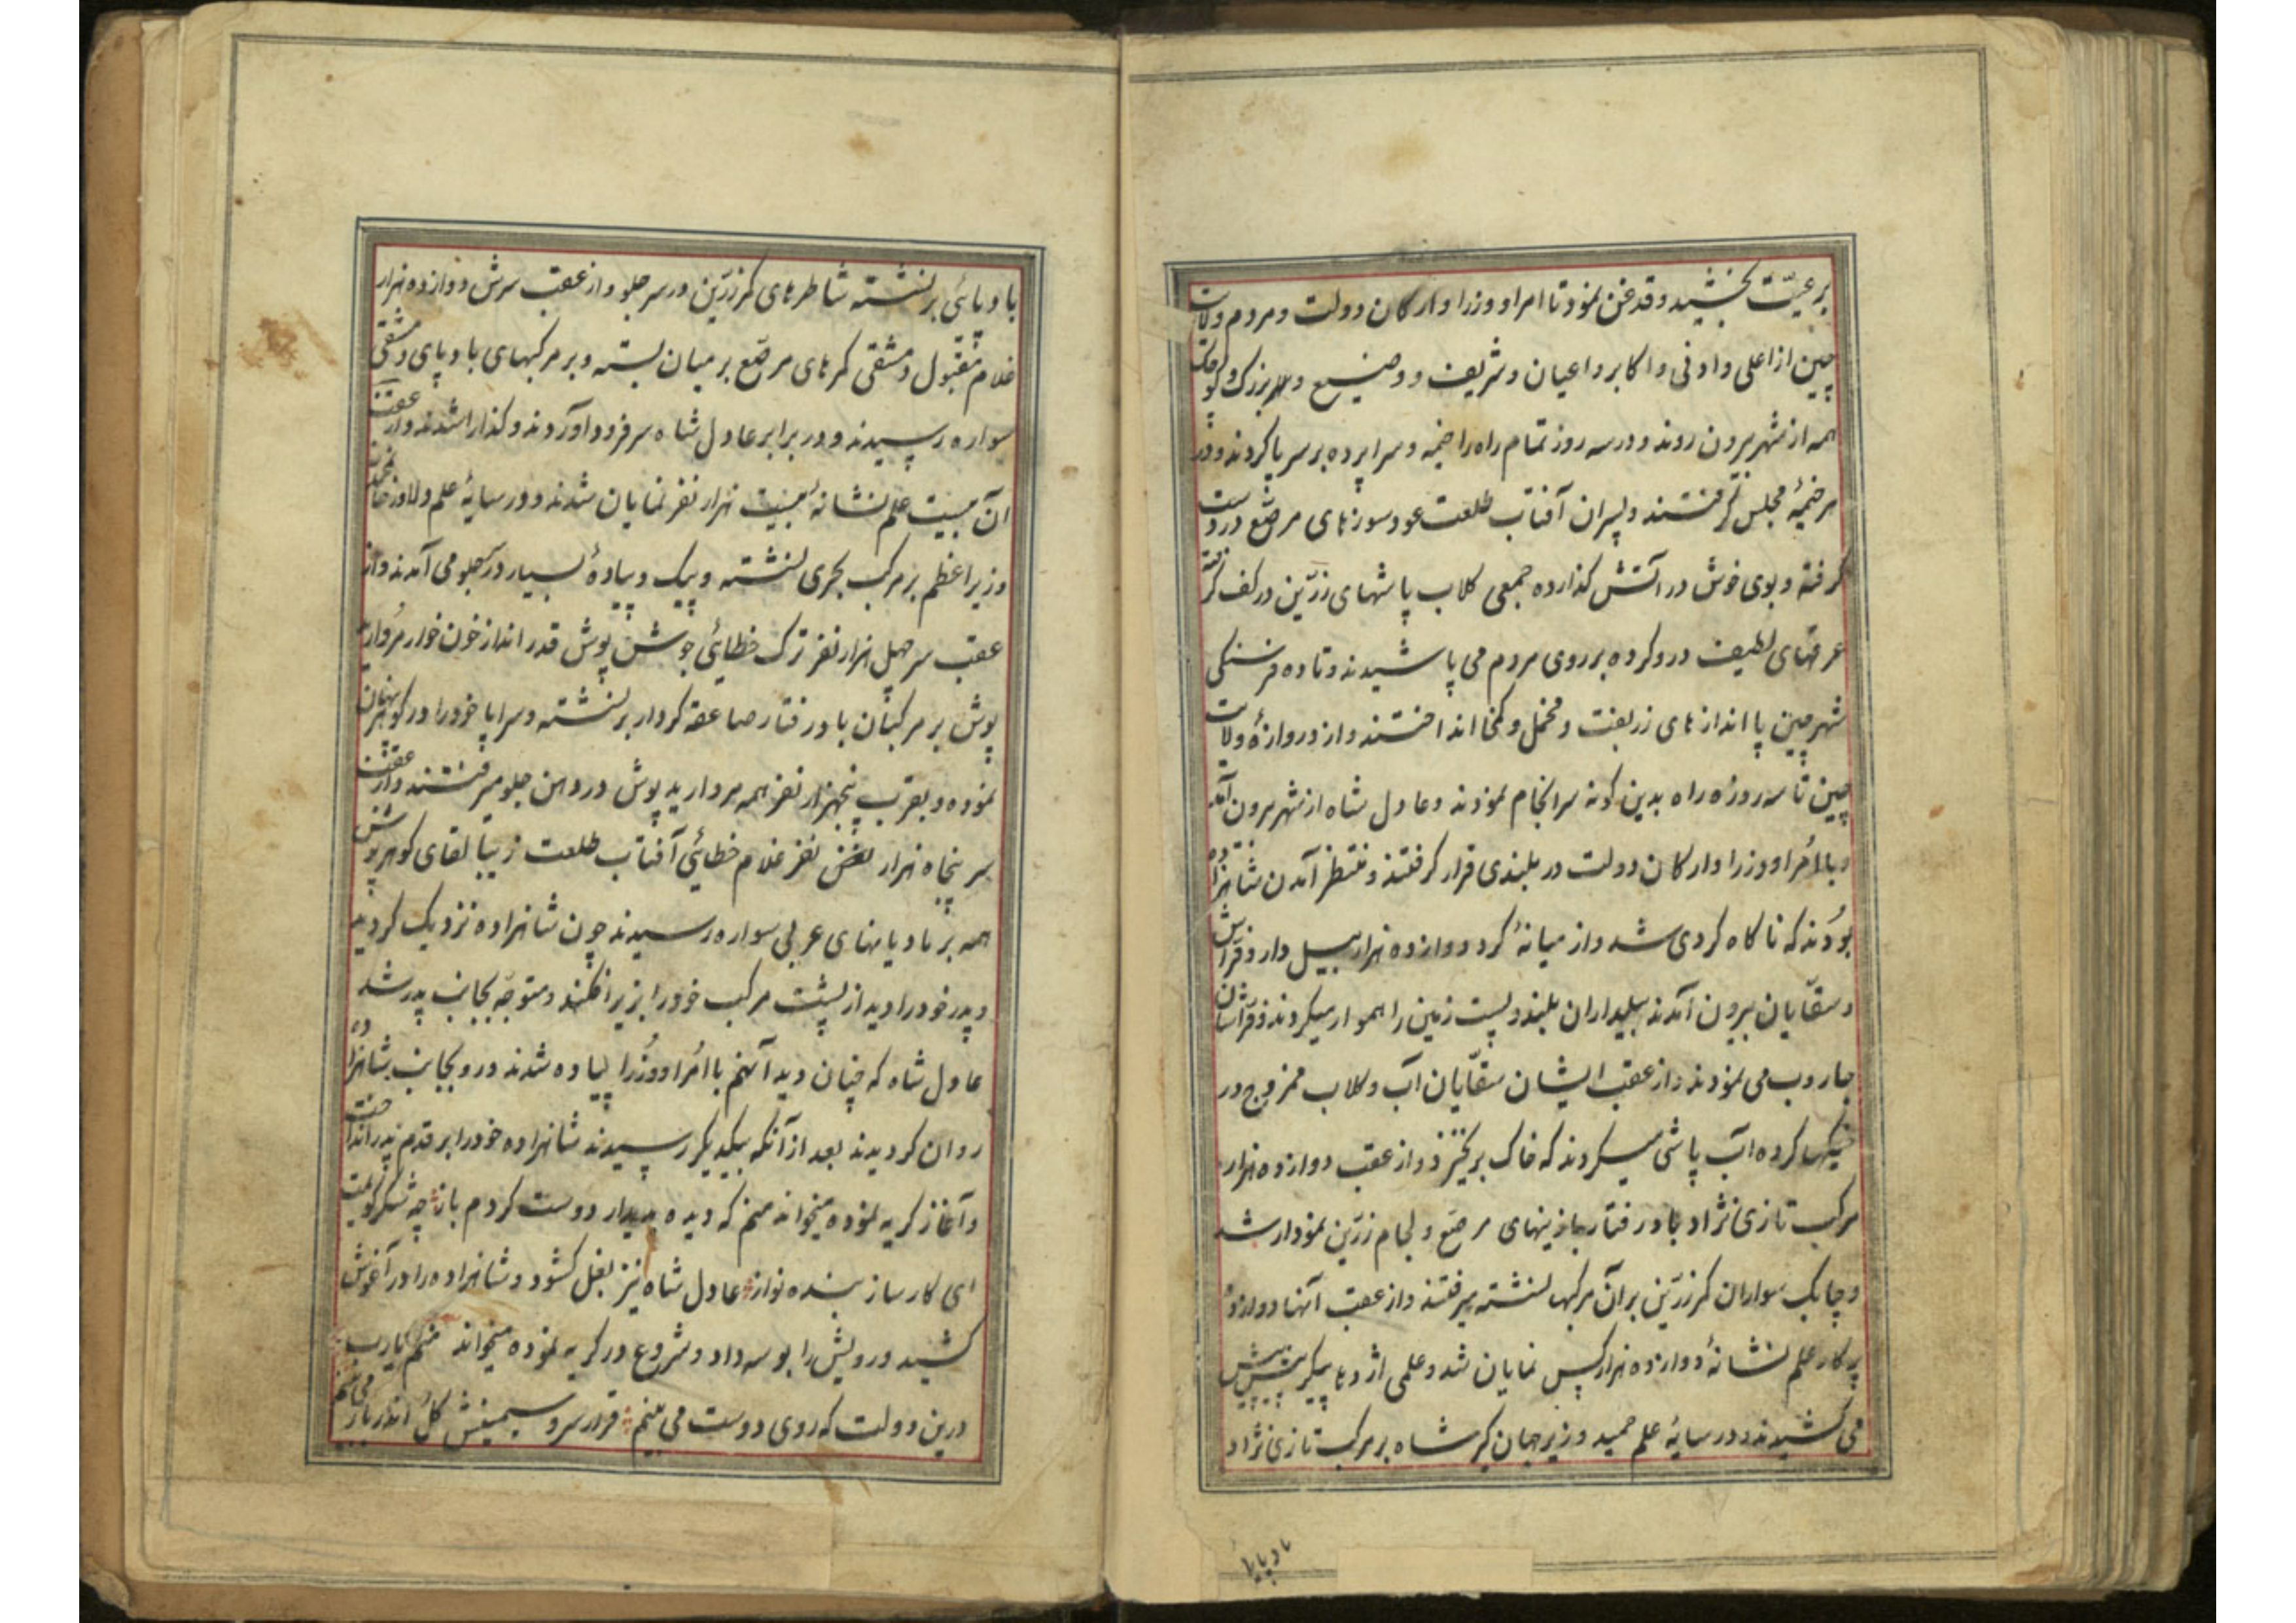 برعیّت بخشید و قدغن نمود تا امرا و وزرا و ارکان دولت و مردم ولات
چین از اعلی و ادنی و اکابر و اعیان و شریف و وضیع و بزرک و کوچک
همه از شهر بیرون روند و در سه روز تمام راه را خیمه و سراپرده بر سر پا کردند و در
هر خیمهٔ مجلس کرفتند و پسران آفتاب طلعت عودسوزهای مرصّع در دست
کرفته و بوی خوش در آتش کذارده جمعی کلاب پاشهای زرّین در کف کرفته
عرقهای لطیف درو کرده بر روی مردم می پاشیدند و تا ده فرسنکی
شهر چین پا اندازهای زربفت و مخمل و کمخا انداختند و از دروازهٔ ولات
چین تا سه روزه راه بدین کونه سرانجام نمودند و عادل شاه از شهر بیرون آمد
و با امُرا و وزرا و ارکان دولت در بلندی قرار کرفتند و منتظر آمدن شاهزاده
بوُدند که ناکاه کردی شد و از میانهٔ کرد دوازده هزار بیل دار و فرّاش
و سقّایان بیرون آمدند بیلداران بلند و پست زمین را هموار میکردند و فرّاشان
جاروب می نمودند و از عقب ایشان سقّایان آب و کلاب ممزوج در
خیکها کرده آب پاشی میکردند که خاک برنخیزد و از عقب دوازده هزار
مرکب تازی نژاد باد رفتار با زینهای مرصّع و لجام زرّین نمودار شد
و چابک سواران کمر زرّین بر آن مرکبها نشسته میرفتند و از عقب آنها دوازده
پرکار علم نشانهٔ دوازده هزار کس نمایان شد و علمی اژدها پیکر پیش پیش
می کشیدند و در سایهٔ علم حمید وزیر جهان کیر شاه بر مرکب تازی نژاد
بادپا
باد پائی برنشسته شاطرهای کمر زرّین در سر جلو و از عقب سرش دوازده هزار
غلام مقبول دمشقی کمرهای مرصّع بر میان بسته و بر مرکبهای باد پای دمشقی
سواره رسیدند و در برابر عادل شاه سر فرود آوردند و کذار شدند و از عقب
آن بیست علم نشانهٔ بیست هزار نفر نمایان شدند و در سایهٔ علم
وزیر اعظم بر مرکب بحری نشسته و پیک و پیادهٔ بسیار در جلو می آمدند و از
عقب سر چهل هزار نفر ترک خطائی جوشن پوش قدر انداز خون خوار مروارید
پوش بر مرکبان باد رفتار صاعقه کردار برنشسته و سراپا خود را در کوهر پنهان
نموده و بقرب پنجهزار نفر همه مروارید پوش در دهن جلو میرفتند و از عقب
سر پنجاه هزار نفر غلام خطائی آفتاب طلعت زیبا لقای کوهر پوش
همه بر بادپایهای عربی سواره رسیدند چون شاهزاده نزدیک کردید
و پدر خود را دید از پشت مرکب خود را بزیر افکند و متوجّه بجانب پدر شد
عادل شاه که چنان دید آنهم با امُرا و وزرا پیاده شدند و رو بجانب شاهزاده
روان کردیدند بعد از آنکه بیکدیکر رسیدند شاهزاده خود را بر قدم پدر انداخت
و آغاز کریه نموده میخواند منم که دیده بدیدار دوست کردم باز چه شکر کویمت
ای کارساز بنده نواز عادل شاه نیز بغل کشود و شاهزاده را در آغوش
کشید و رویش را بوسه داد و شروع در کریه نموده میخواند منم یارب
درین دولت که روی دوست می بینم فراز سرو سیمینش کل اندر بار می بینم